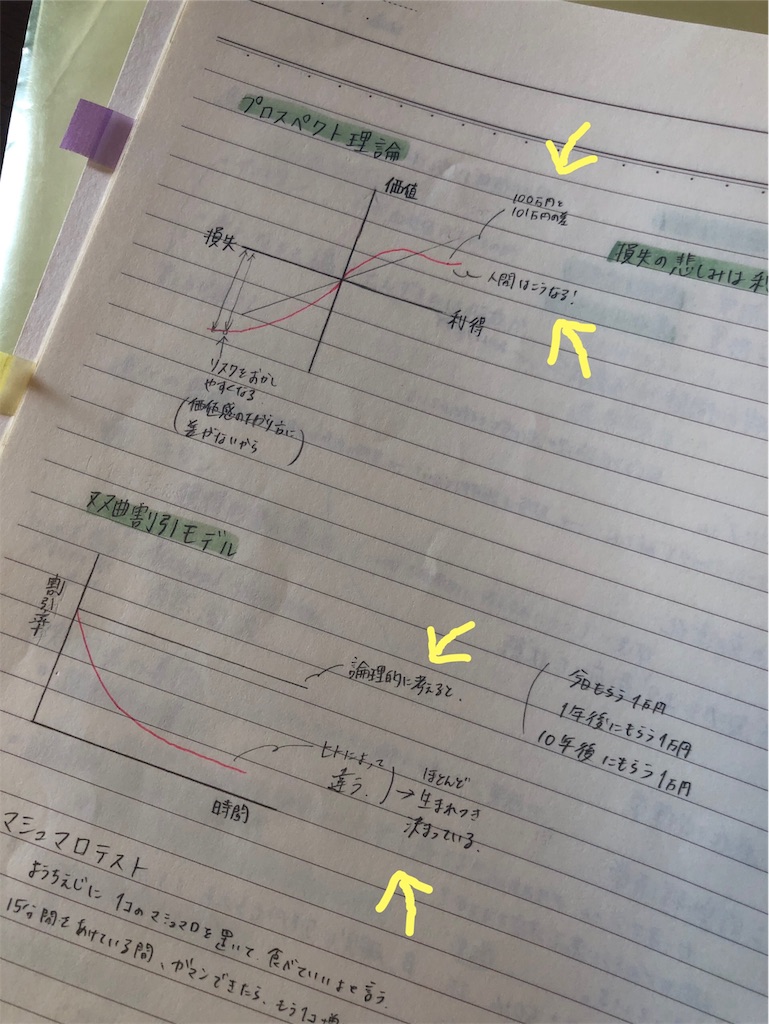 プロスペクト理論
価値
100万円と
101万円の差
損失
損失の悲しみは利
人間はこうなる!
利得
リスクをおかし
やすくなる
(価値感の下がり方に
差がないから)
双曲割引モデル
割引率
論理的に考えると、
今日もらう1万円
1年後にもらう1万円
10年後にもらう1万円
ヒトによって
違う。
ほとんど
→生まれつき
決まっている。
時間
マシュマロテスト
ようちえんじに1コのマシュマロを置いて、食べていいよと言う。
15分間をあけている間、ガマンできたら、もう1コ増